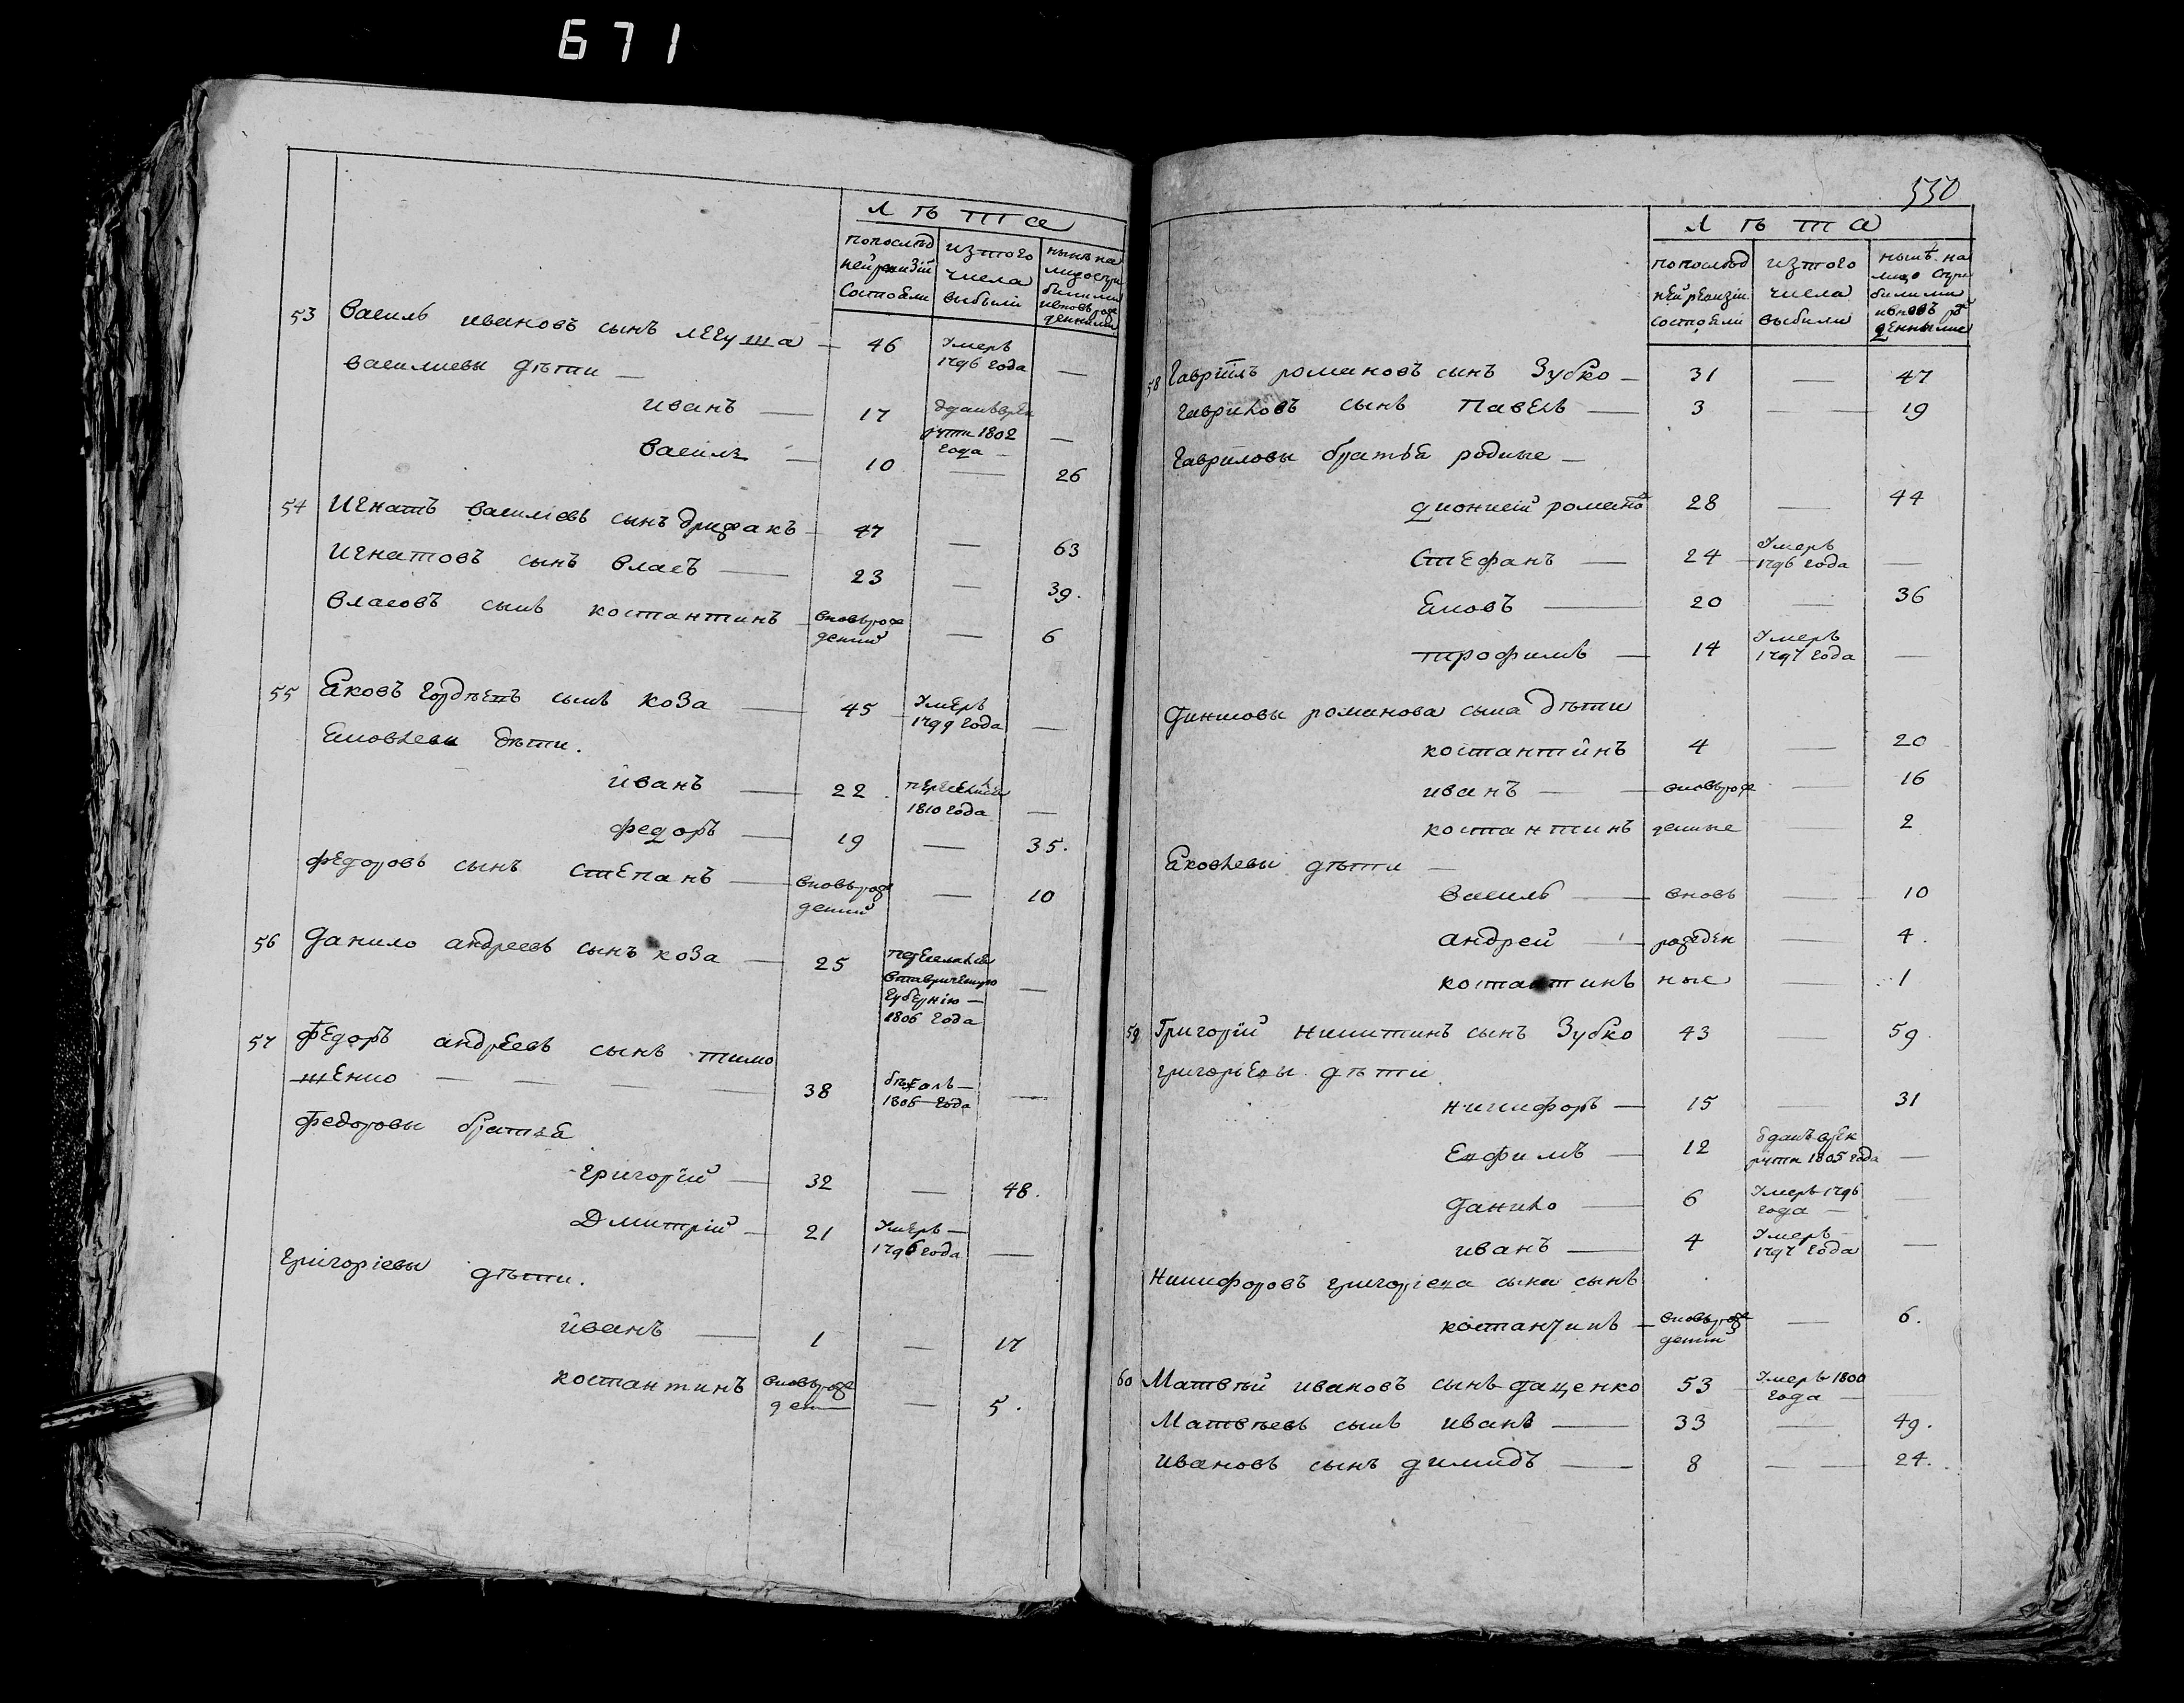 671
Лѣта
попослѣд изтого нынѣ на
ней ревизіи числа лицо спри
состояли выбыли былыми
ивновь рож
денными
53 Василь ивановъ сынъ легуша — 46 Умеръ
1796 года —
василиевы дѣти —
иванъ — 17 Одданъ врек
рути 1802
года — —
василь — 10 — 26
54 Игнатъ василіевъ сынъ дрифакъ — 47 — 63
игнатовъ сынъ власъ — 23 — 39.
власовъ сынъ костантинъ — вновьрож
деній — 6
55 Яковъ гордѣевъ сынъ коза — 45 Умеръ
1799 года —
Яковлеви дѣти.
иванъ — 22 переселенъ
1810 года —
федоръ — 19 — 35.
федоровъ сынъ степанъ — вновьрож
деній — 10
56 Данило андреевъ сынъ коза — 25 переселенъ
втаврическую
губернію —
1806 года —
57 Федоръ андреевъ сынъ тимо
шенко — — — — 38 бѣжалъ —
1806 года —
Федоровы братья
григорій — 32 — 48.
Дмитрій — 21 Умеръ —
1796 года —
григоріевы дѣти.
иванъ — 1 — 17
костантинъ вновьрож
ден — — 5.
550
Лѣта
попослѣд изтого нынѣ на
ней ревизіи числа лицо спри
состояли выбыли былыми
ивновь ро
жденными
58 Гаврііль романовъ сынъ Зубко — 31 — 47
гавриловъ сынъ павелъ — 3 — 19
гавриловы братья родные —
дионисій романо 28 — 44
Стефанъ — 24 Умеръ
1796 года —
Яковъ — 20 — 36
трофимъ — 14 Умеръ
1797 года —
романова сына дѣти
костантинъ 4 — 20
иванъ — — вновьрож — 16
костантинъ денные — 2
Яковлевы дѣти —
василь — вновь — 10
андрей — рожден — 4.
костантинъ ные — 1
59 Григорій никитинъ сынъ Зубко 43 — 59.
григоріевы дѣти
никифоръ — 15 — 31
Евфимъ — 12 Одданъ врек
рути 1805 года —
данило — 6 Умеръ 1796
года — —
иванъ — 4 Умеръ —
1797 года —
Никифоровъ григоріева сына сынъ
костантинъ — вновьрож
деній — 6.
60 Матвѣй ивановъ сынъ даценко 53 Умеръ 1800
года — —
Матвѣевъ сынъ иванъ — 33 — 49.
ивановъ сынъ димидъ — 8 — — 24.